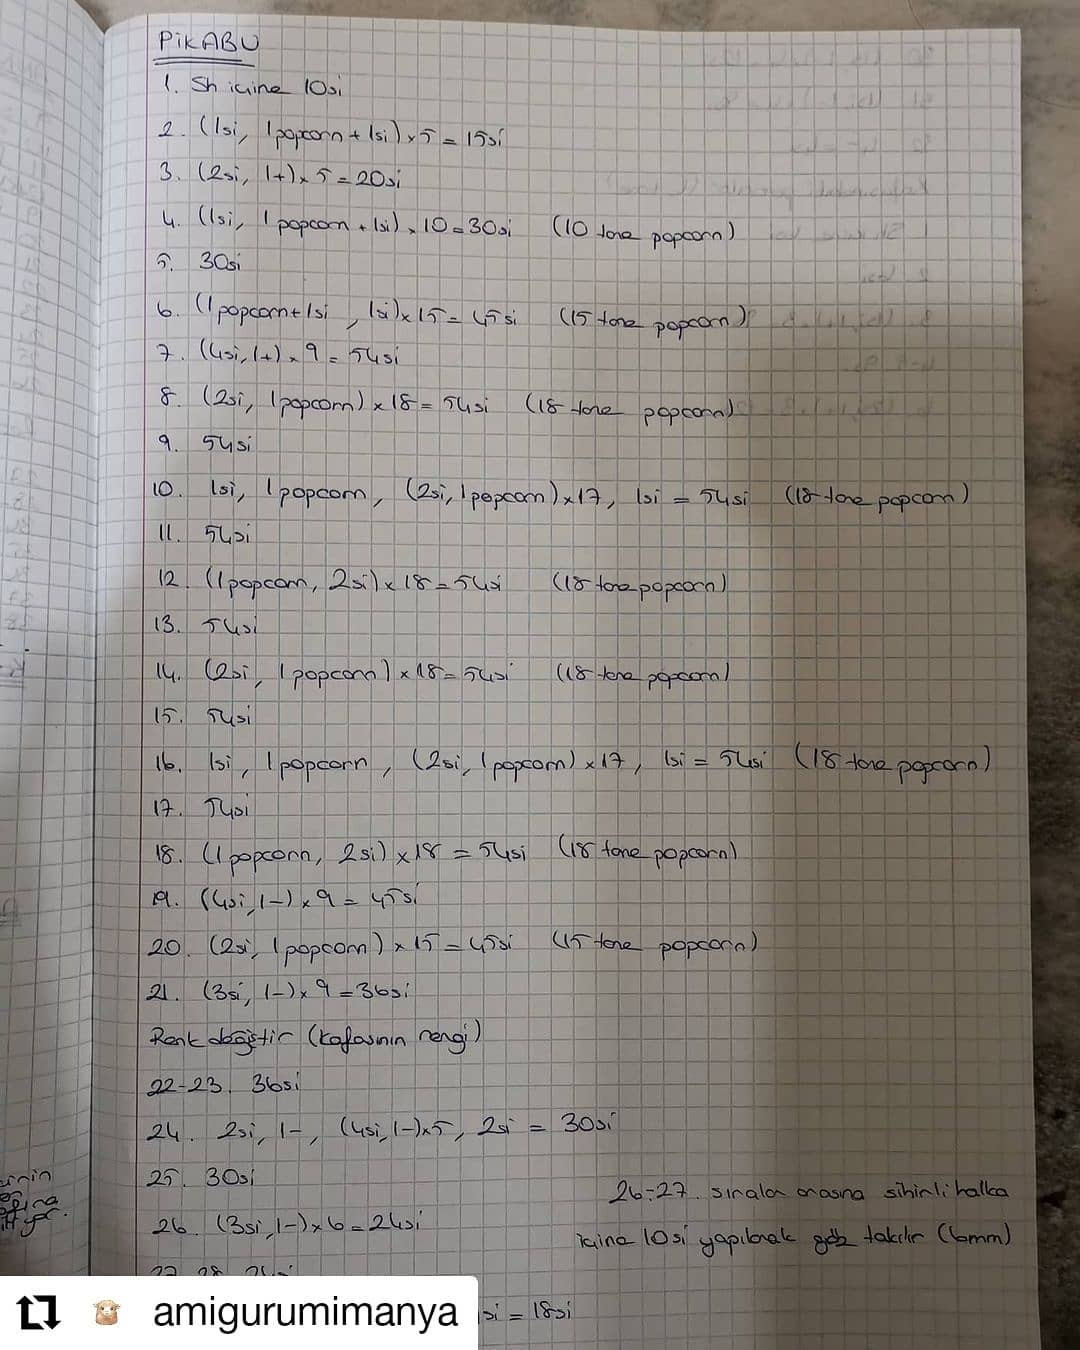 PİKABU
1. Sh içine 10si
2. (1si, 1popcorn + 1si) x 5 = 15si
3. (2si, 1+) x 5 = 20si
4. (1si, 1 popcorn + 1si) x 10 = 30si (10 tane popcorn)
5. 30si
6. (1 popcorn + 1si, 1si) x 15 = 45si (15 tane popcorn)
7. (4si, 1+) x 9 = 54si
8. (2si, 1popcorn) x 18 = 54si (18 tane popcorn)
9. 54si
10. 1si, 1popcorn, (2si, 1popcorn) x 17, 1si = 54si (18 tane popcorn)
11. 54si
12. (1popcorn, 2si) x 18 = 54si (18 tane popcorn)
13. 54si
14. (2si, 1popcorn) x 18 = 54si (18 tane popcorn)
15. 54si
16. 1si, 1popcorn, (2si, 1popcorn) x 17, 1si = 54si (18 tane popcorn)
17. 54si
18. (1popcorn, 2si) x 18 = 54si (18 tane popcorn)
19. (4si, 1-) x 9 = 45si
20. (2si, 1popcorn) x 15 = 45si (15 tane popcorn)
21. (3si, 1-) x 9 = 36si
Renk değiştir (kafasının rengi)
22-23. 36si
24. 2si, 1-, (4si, 1-) x 5, 2si = 30si
25. 30si
26-27. sıralar arasına sihirli halka
26. (3si, 1-) x 6 = 24si
içine 10si yapılarak göz takılır (6mm)
27-28. 24si
si = 18si
amigurumimanya